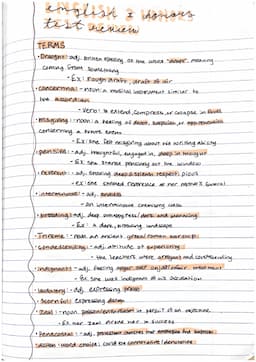 english 2 honors
test review
TERMS
• Draught: adj. British spelling of the word "draft", meaning
coming from something
• Ex: rough draft, draft of air
• Concertina: - noun: a musical instrument similar to
the accordion
- Verb: to extend, compress, or collapse in folds
• misgiving: noun: a feeling of doubt, suspicion, or apprehension
concerning a future event
- Ex: She felt misgiving about his writing ability
• pensive: - adj. thoughtful, engaged in, deep in thought
- Ex: She stared pensively out the window
• reverent: - adj. showing deep & solemn respect; pious
- Ex: She stayed reverent at her mother's funeral
• interminable: - adj. endless
- an interminable ceremony
• brooding: - adj. deep unhappiness, dark and menacing
- Ex: a dark, brooding landscape
• Trireme: - noun: an ancient
• Condescending: - adj. attitude of superiority
- the teachers were arrogant and condescending
• indignant: - adj. feeling anger over unjust/unfair treatment
- Ex: She was indignant at his accusation
• laudatory: - adj. expressing praise
• Scornful: expressing
• Zeal: - noun. passionate/ardent in pursuit of an outcome
- Ex: her zeal drove her to success
• Pentecostal: - adj.
• diction: word choice; could be connotative/denotative